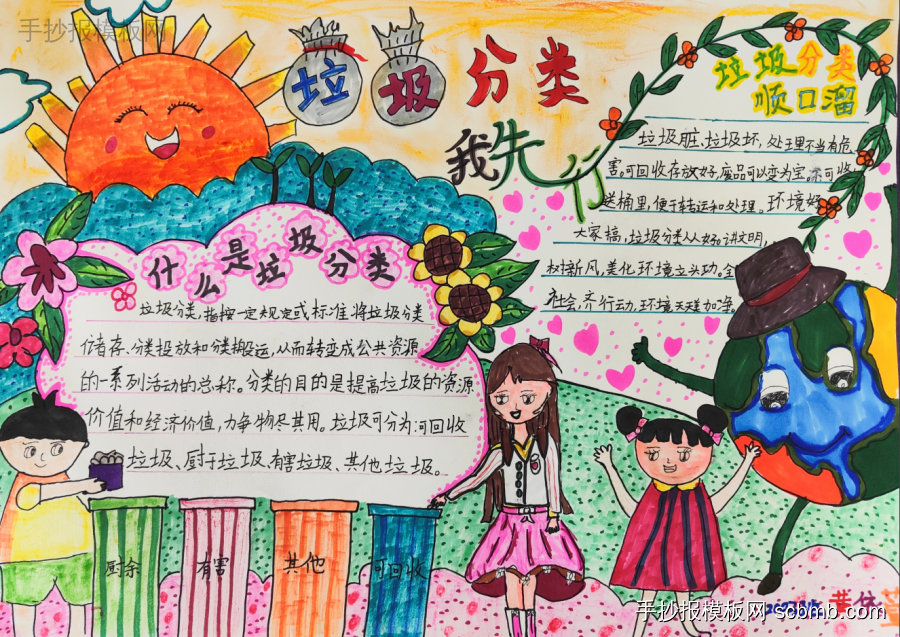 手抄报模板网
垃圾分类
我先行
垃圾分类
顺口溜
垃圾脏、垃圾坏,处理不当有危
害。可回收存放好,废品可以变为宝。不可收
送桶里,便于转运和处理。环境好
大家搞,垃圾分类人人好讲文明,
树新风,美化环境立头功。全
社会,齐行动,环境天天加净。
什么是垃圾分类
垃圾分类,指按一定规定或标准将垃圾分类
储存、分类投放和分类搬运,从而转变成公共资源
的一系列活动的总称。分类的目的是提高垃圾的资源
价值和经济价值,力争物尽其用。垃圾可分为:可回收
垃圾、厨于垃圾、有害垃圾、其他垃圾。
厨余
有害
其他
可回收
手抄报模板网 scbmb.com